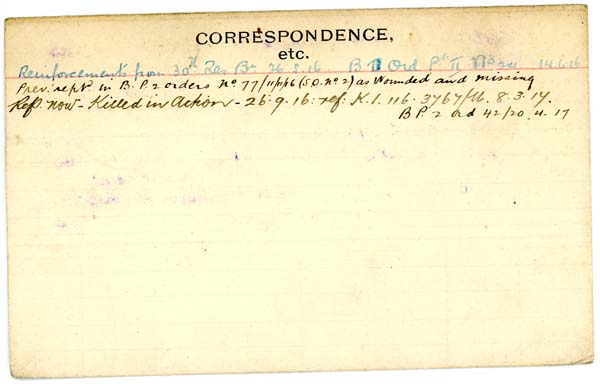 CORRESPONDENCE,
etc.
Reinforcements from 30th Res Bn 26.5.16 B II Ord Pt II No 24 14.6.16
Prev. rept. in B. P. 2 orders No 77/11/11/16 (S.O. No 2) as Wounded and missing
Rept now - Killed in Action - 26.9.16: ref: K.1. 116. 3767/16. 8.3.17.
B P. 2 ord 42/20.4.17